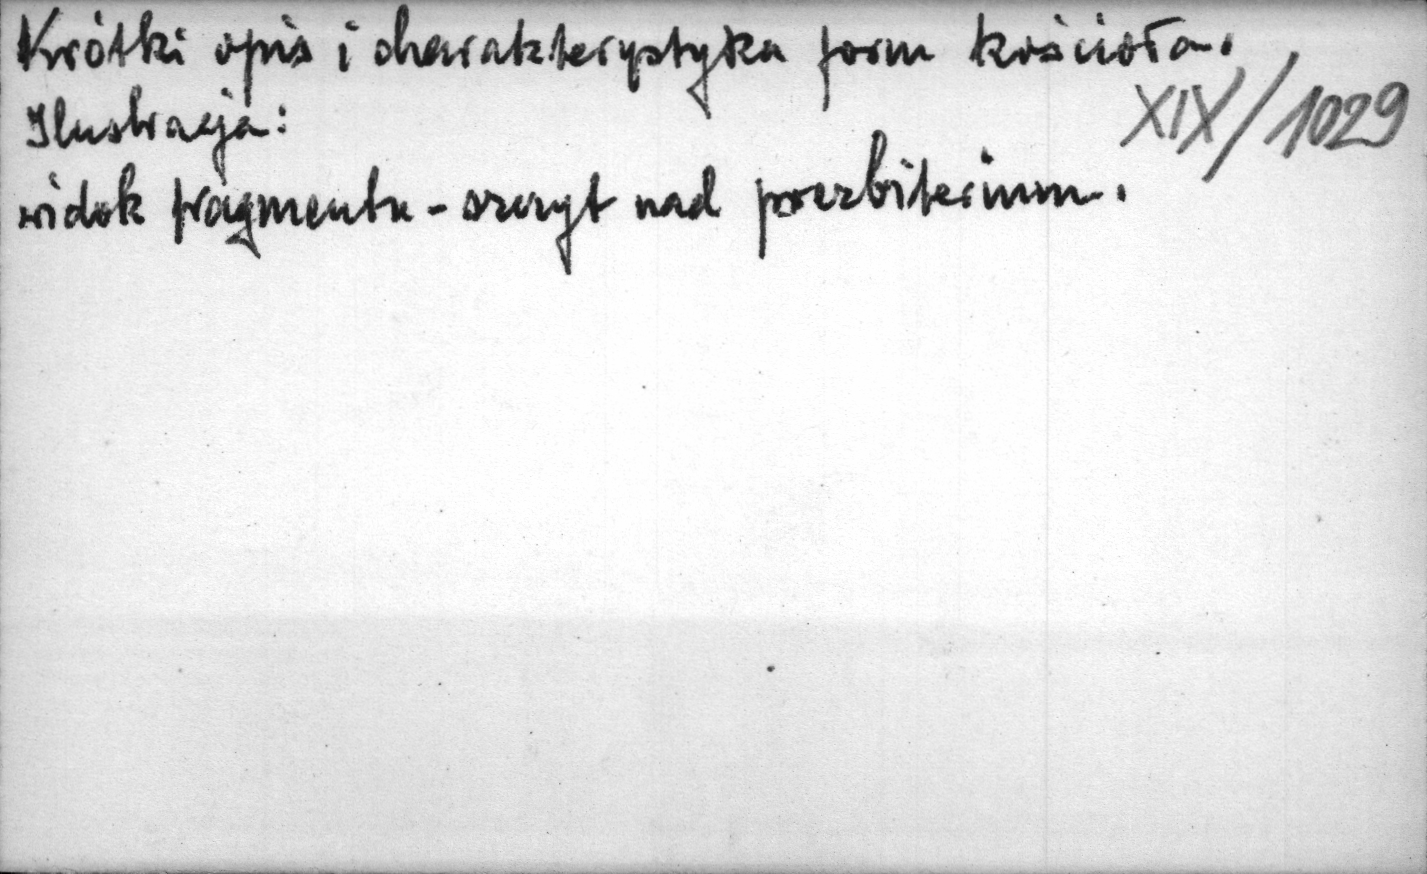 Krótki opis i charakterystyka form kościoła.
XIX/1029
Ilustracja:
widok fragmentu - szczyt nad prezbiterium.